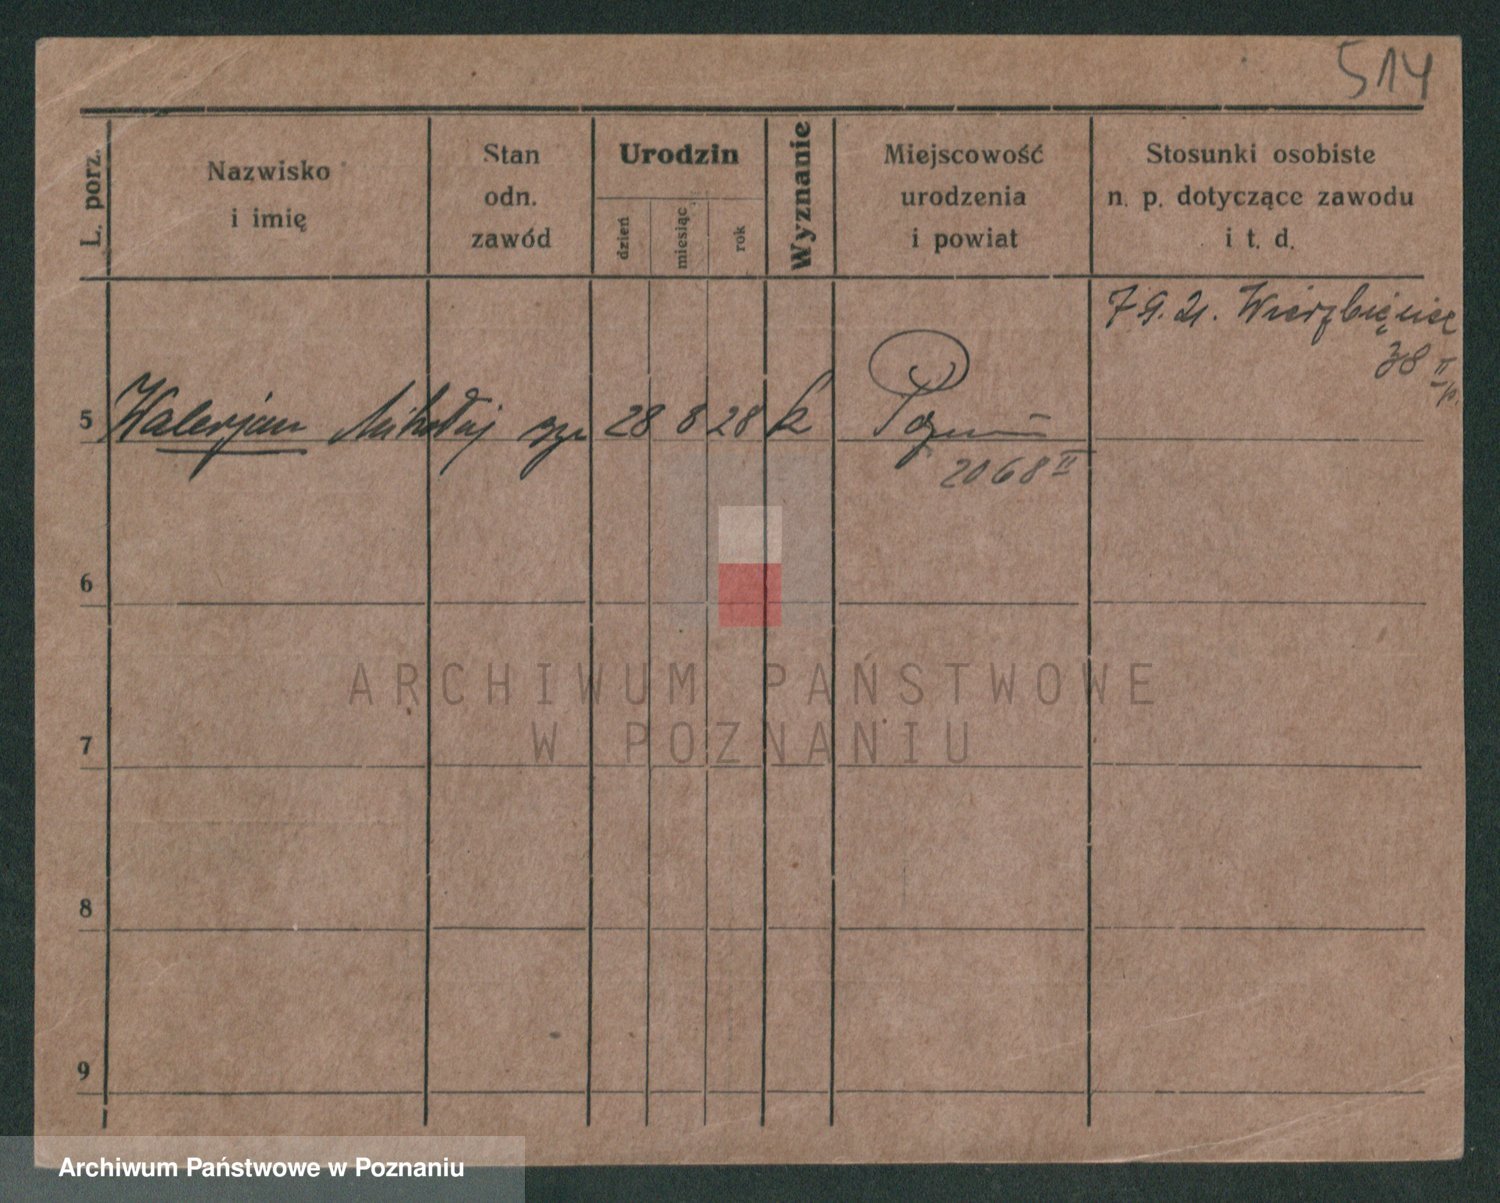 514
L. porz.
Nazwisko
i imię
Stan
odn.
zawód
Urodzin
dzień
miesiąc
rok
Wyznanie
Miejscowość
urodzenia
i powiat
Stosunki osobiste
n. p. dotyczące zawodu
i t. d.
7 9. 21. Wierzbięcice
38 II p.
5 Walerjan Mikołaj 28 8 28 k Poznań
2068 II
6
7
8
9
ARCHIWUM PAŃSTWOWE
W POZNANIU
Archiwum Państwowe w Poznaniu